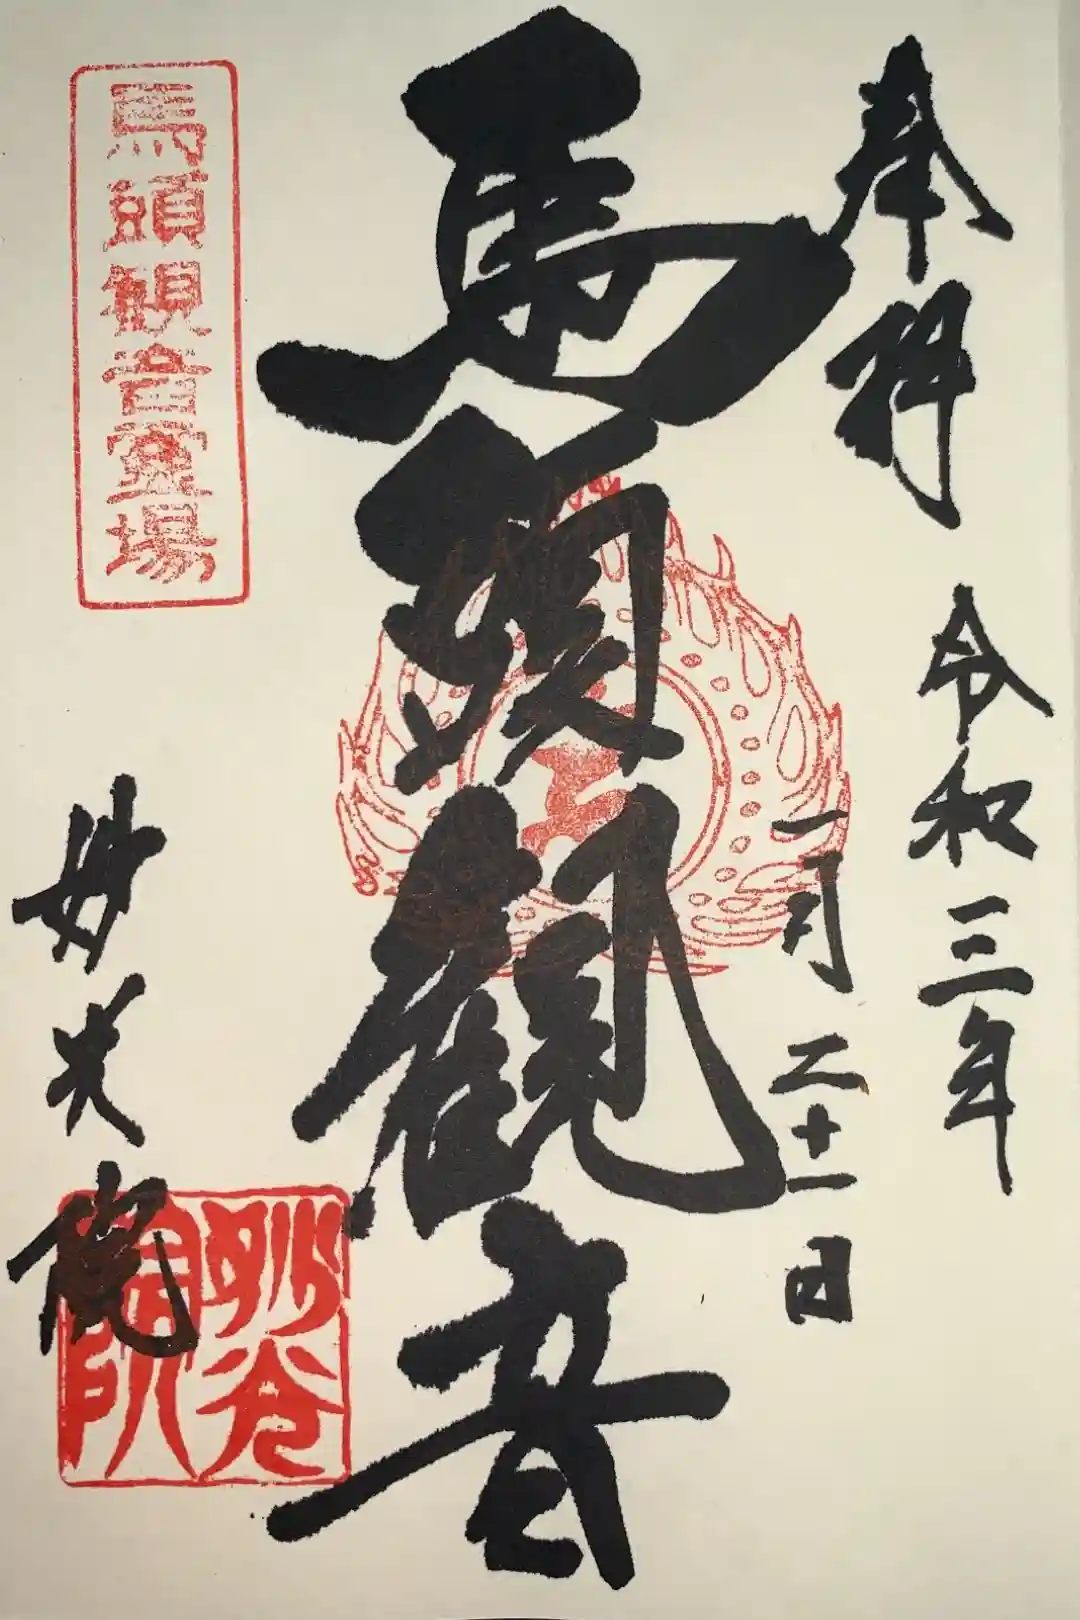 奉拝
令和三年
一月二十一日
馬頭観音
馬頭観音霊場
妙光院
妙光院